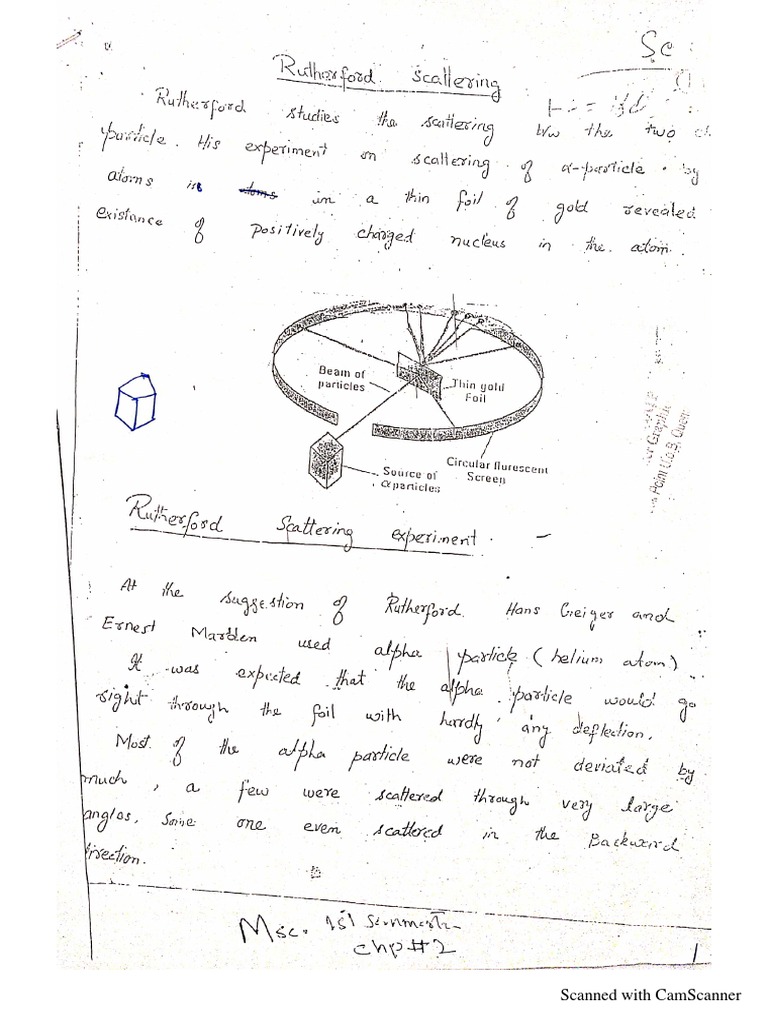 Sc
Rutherford scattering
Rutherford studies the scattering b/w the two
particle. His experiment on scattering of α-particle by
atoms in a thin foil of gold revealed
existance of positively charged nucleus in the atom.
Beam of
particles
Thin gold
Foil
Circular flurescent
Screen
Source of
α particles
Rutherford Scattering experiment. -
At the suggestion of Rutherford. Hans Geiger and
Ernest Marsden used alpha particle (helium atom)
It was expected that the alpha particle would go
right through the foil with hardly any deflection.
Most of the alpha particle were not deviated by
much, a few were scattered through very large
angles, Some one even scattered in the Backward
direction.
Msc. 1st
chp#2
1
Scanned with CamScanner